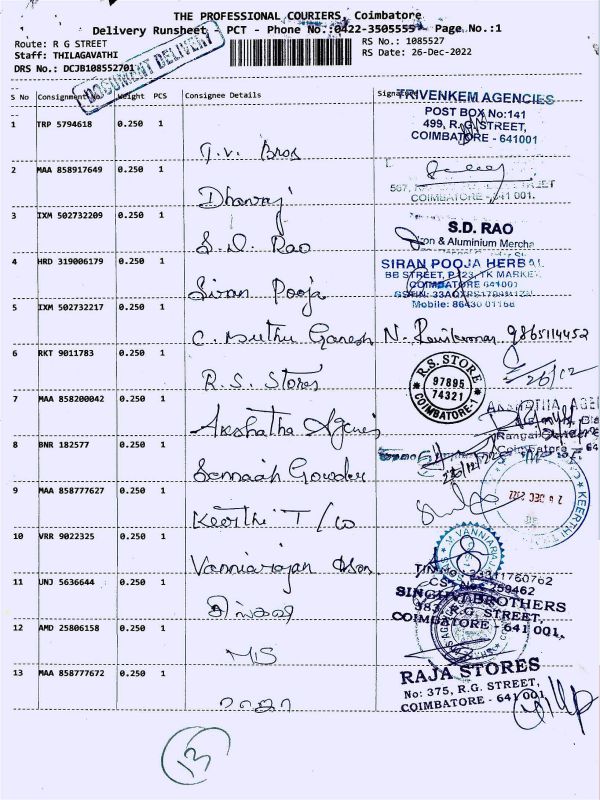 THE PROFESSIONAL COURIERS, Coimbatore
Delivery Runsheet PCT - Phone No.:0422-3505555 Page No.:1
Route: R G STREET
RS No.: 1085527
Staff: THILAGAVATHI
RS Date: 26-Dec-2022
DRS No.: DCJB108552701
DOCUMENT DELIVERY
S No Consignment No Weight PCS Consignee Details Signature
TRIVENKEM AGENCIES
POST BOX No:141
499, R.G. STREET,
COIMBATORE - 641001
1 TRP 5794618 0.250 1
T.V. Bros
2 MAA 858917649 0.250 1
Dhanraj
COIMBATORE - 641 001.
3 IXM 502732209 0.250 1
S.D. Rao
S.D. RAO
Iron & Aluminium Mercha
4 HRD 319006179 0.250 1
Siran Pooja
SIRAN POOJA HERBAL
BB STREET, P 23, TK MARKET,
COIMBATORE 641001
Mobile: 86430 01168
5 IXM 502732217 0.250 1
C. Muthu Ganesh N. Ravikumar 9865114452
6 RKT 9011783 0.250 1
R.S. Stores
R.S. STORE
97895
74321
COIMBATORE-1
26/12
7 MAA 858200042 0.250 1
Akshatha Agencies
AKSHATHA AGEN
Coimbatore - 64
8 BNR 182577 0.250 1
Sennaah Gowder
26/12/22
9 MAA 858777627 0.250 1
Keerthi T/co
KEERTHI
26 DEC 2022
10 VRR 9022325 0.250 1
Vanniarajan &Son
M VANNIARA
11 UNJ 5636644 0.250 1
சிங்கவி
SINGHVI BROTHERS
387, R.G. STREET,
COIMBATORE - 641 001.
12 AMD 25806158 0.250 1
MS
13 MAA 858777672 0.250 1
ராஜா
RAJA STORES
No: 375, R.G. STREET,
COIMBATORE - 641 001
13